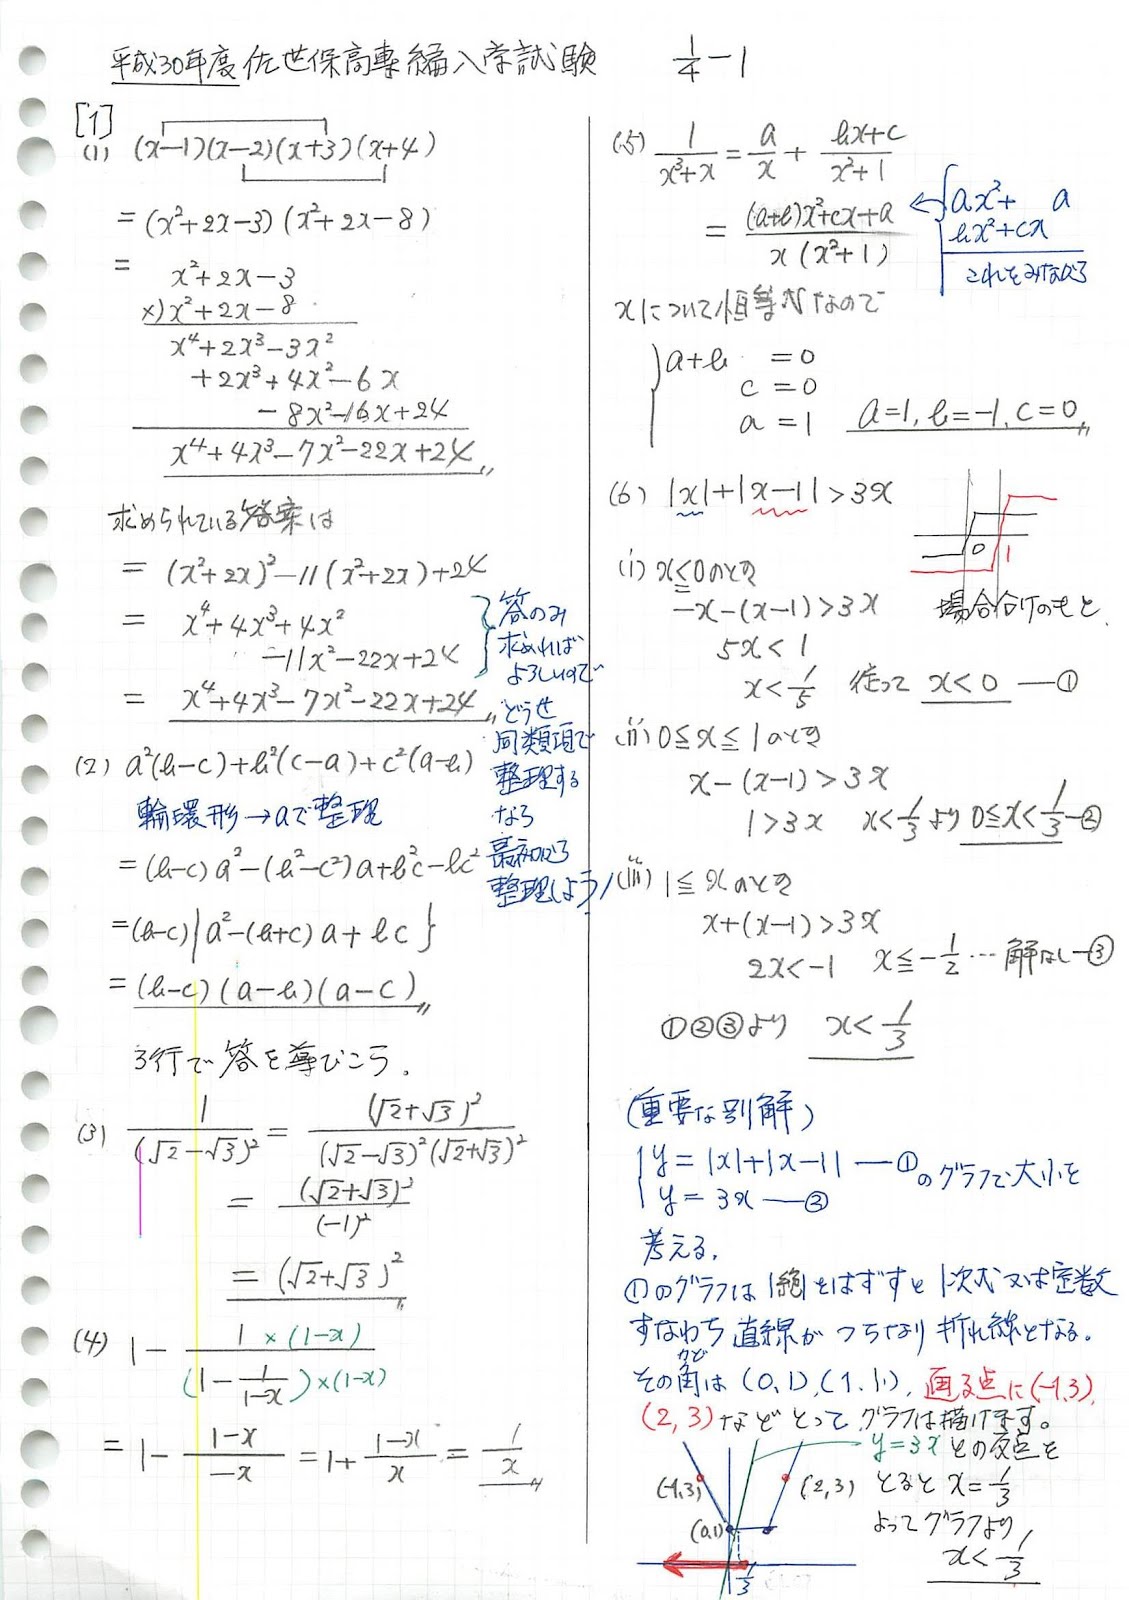 平成30年度佐世保高専編入学試験 1/4-1
[1]
(1) (x-1)(x-2)(x+3)(x+4)
= (x²+2x-3)(x²+2x-8)
= x²+2x-3
×)x²+2x-8
x⁴+2x³-3x²
+2x³+4x²-6x
-8x²-16x+24
x⁴+4x³-7x²-22x+24〃
求められている答案は
= (x²+2x)²-11(x²+2x)+24
= x⁴+4x³+4x²
-11x²-22x+24
= x⁴+4x³-7x²-22x+24〃
答のみ
求めれば
よろしいので
どうせ
同類項で
整理する
なら
最初から
整理しよう!
(2) a²(b-c)+b²(c-a)+c²(a-b)
輪環形→aで整理
=(b-c)a²-(b²-c²)a+b²c-bc²
=(b-c){a²-(b+c)a+bc}
=(b-c)(a-b)(a-c)〃
3行で答を導びこう。
(3) 1/(√2-√3)² = (√2+√3)²/(√2-√3)²(√2+√3)²
= (√2+√3)²/(-1)²
= (√2+√3)²〃
(4) 1- 1×(1-x)/(1-1/(1-x))×(1-x)
= 1- (1-x)/(-x) = 1+ (1-x)/x = 1/x〃
(5) 1/(x³+x) = a/x + (bx+c)/(x²+1)
= ((a+b)x²+cx+a)/(x(x²+1))
← { ax²+ a
bx²+cx
これをみながら
xについて恒等式なので
{ a+b =0
c =0
a =1 a=1, b=-1, c=0〃
(6) |x|+|x-1|>3x
0 1
(i) x≦0のとき
場合分けのもと、
-x-(x-1)>3x
5x<1
x<1/5 従って x<0 ―①
(ii) 0≦x≦1のとき
x-(x-1)>3x
1>3x x<1/3より 0≦x<1/3 ―②
(iii) 1≦xのとき
x+(x-1)>3x
2x<-1 x≦-1/2 … 解なし―③
①②③より x<1/3
(重要な別解)
{ y=|x|+|x-1| ―①
y=3x ―② のグラフで大小を
考える。
①のグラフは|絶|をはずすと1次式又は定数
すなわち直線がつらなり折れ線となる。
その角は(0,1),(1,1), 通る点に(-1,3),
かど
(2,3)などとってグラフは描けます。
y=3xとの交点を
とると x=1/3
よってグラフより
x<1/3
(-1,3)
(2,3)
(0,1)
1/3